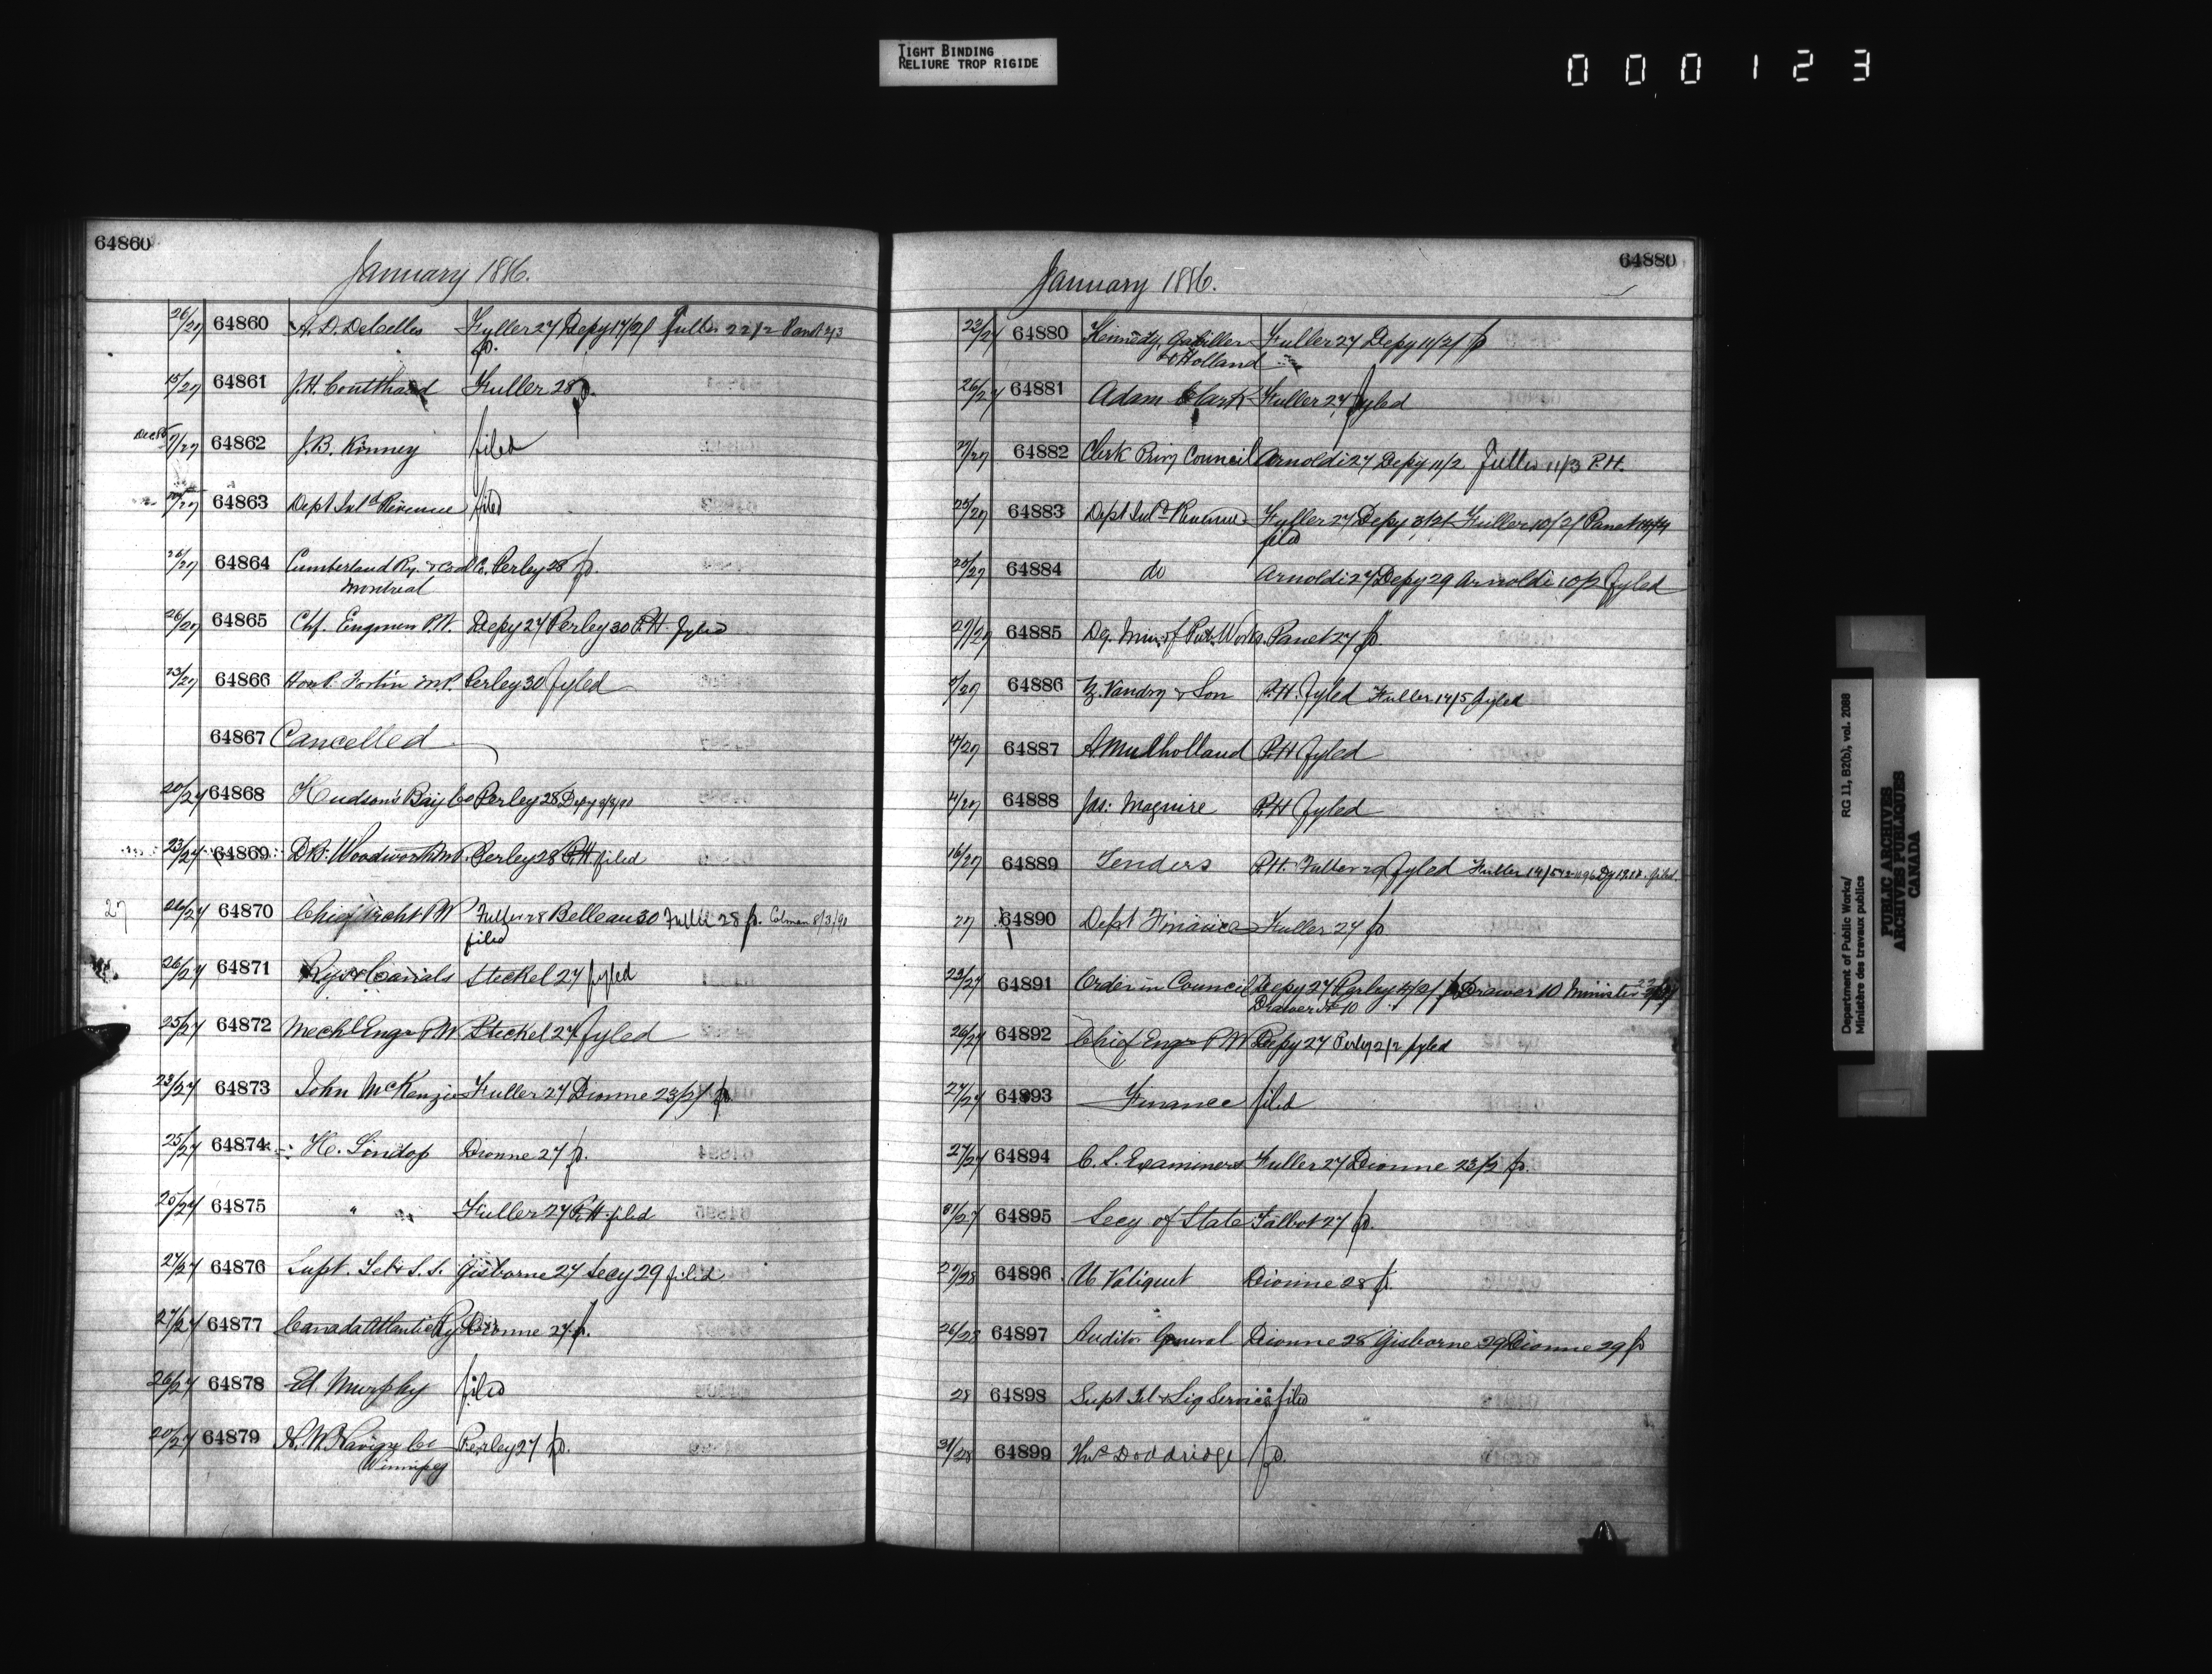 TIGHT BINDING
RELIURE TROP RIGIDE
000123
64860
January 1886.
26/27 64860 A. D. Decelles Fuller 27 Depy 17/2/ Fuller 22/2 Panet 2/3
p.
15/27 64861 J. H. Coulthard Fuller 28 p.
Dec 85 7/27 64862 J. B. Kinney filed
/27 64863 Dept Inld Revenue filed
26/27 64864 Cumberland Ry. & Coal Co. Perley 28 p.
Montreal
26/27 64865 Chf. Engineer P.W. Depy 27 Perley 30 P.H. fyled
23/27 64866 Hon P. Fortin M.P. Perley 30 fyled
64867 Cancelled
20/27 64868 Hudson's Bay Co Perley 28 Depy
23/27 64869 D. B. Woodworth M.P. Perley 28 P.H. filed
27 26/27 64870 Chief Archt P W Fuller 28 Belleau 30 Fuller 28 p. Colman 8/3/90
filed
26/27 64871 Rys & Canals Steckel 27 fyled
25/27 64872 Mechl Engr P W Steckel 27 fyled
23/27 64873 John McKenzie Fuller 27 Dionne 23/2/ p
25/27 64874 H. Lindop Dionne 27 p.
25/27 64875 " " Fuller 27 P.H. filed
27/27 64876 Supt. Tel & S. S. Gisborne 27 Secy 29 filed
27/27 64877 Canada Atlantic Ry Dionne 27 p.
26/27 64878 Ed. Murphy filed
20/27 64879 N. W. Navign Co Perley 27 p.
Winnipeg
64880
January 1886.
22/27 64880 Kennedy, Gaviller Fuller 27 Depy 11/2/ p
& Holland
26/27 64881 Adam Clark Fuller 27 fyled
27/27 64882 Clerk Privy Council Arnoldi 27 Depy 11/2 Fuller 11/3 P.H.
25/27 64883 Dept Inld Revenue Fuller 27 Depy 3/2/ Fuller 10/2/ Panet 14/4
filed
25/27 64884 do Arnoldi 27 Depy 29 Arnoldi 10/2 fyled
27/27 64885 Dep. Min. of Pub. Works. Panet 27 p.
/27 64886 Z. Vandry & Son P.H. fyled Fuller 14/5 fyled
/27 64887 A Mulholland P.H fyled
/27 64888 Jas: Maguire P.H fyled
16/27 64889 Tenders P.H. Fuller 29 fyled Fuller 14/5 filed.
27 64890 Dept Finance Fuller 27 p
23/27 64891 Order in Council Depy 27 Perley 1/2/ p Drawer 10 Minister
Drawer No 10
26/27 64892 Chief Engr P W Depy 27 Perley 2/2 fyled
27/27 64893 Finance filed
27/27 64894 C. S. Examiners Fuller 27 Dionne 23/2 p.
/27 64895 Secy of State Talbot 27 p.
27/28 64896 U. Valiquet Dionne 28 p.
26/28 64897 Auditor General Dionne 28 Gisborne 29 Dionne 29 p
28 64898 Supt Tel & Sig Service filed
/28 64899 Doddridge p.
Department of Public Works/ RG 11, B2(b), vol. 2088
Ministère des travaux publics
PUBLIC ARCHIVES
ARCHIVES PUBLIQUES
CANADA